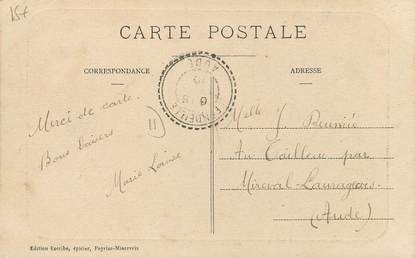 15€
CARTE POSTALE
CORRESPONDANCE
ADRESSE
AUDE
Merci de carte.
Bons baisers
Marie Louise
11
Melle J.
Au Tailleur par
Mireval-Lauragais
(Aude)
Edition Escribe, épicier, Peyriac-Minervois